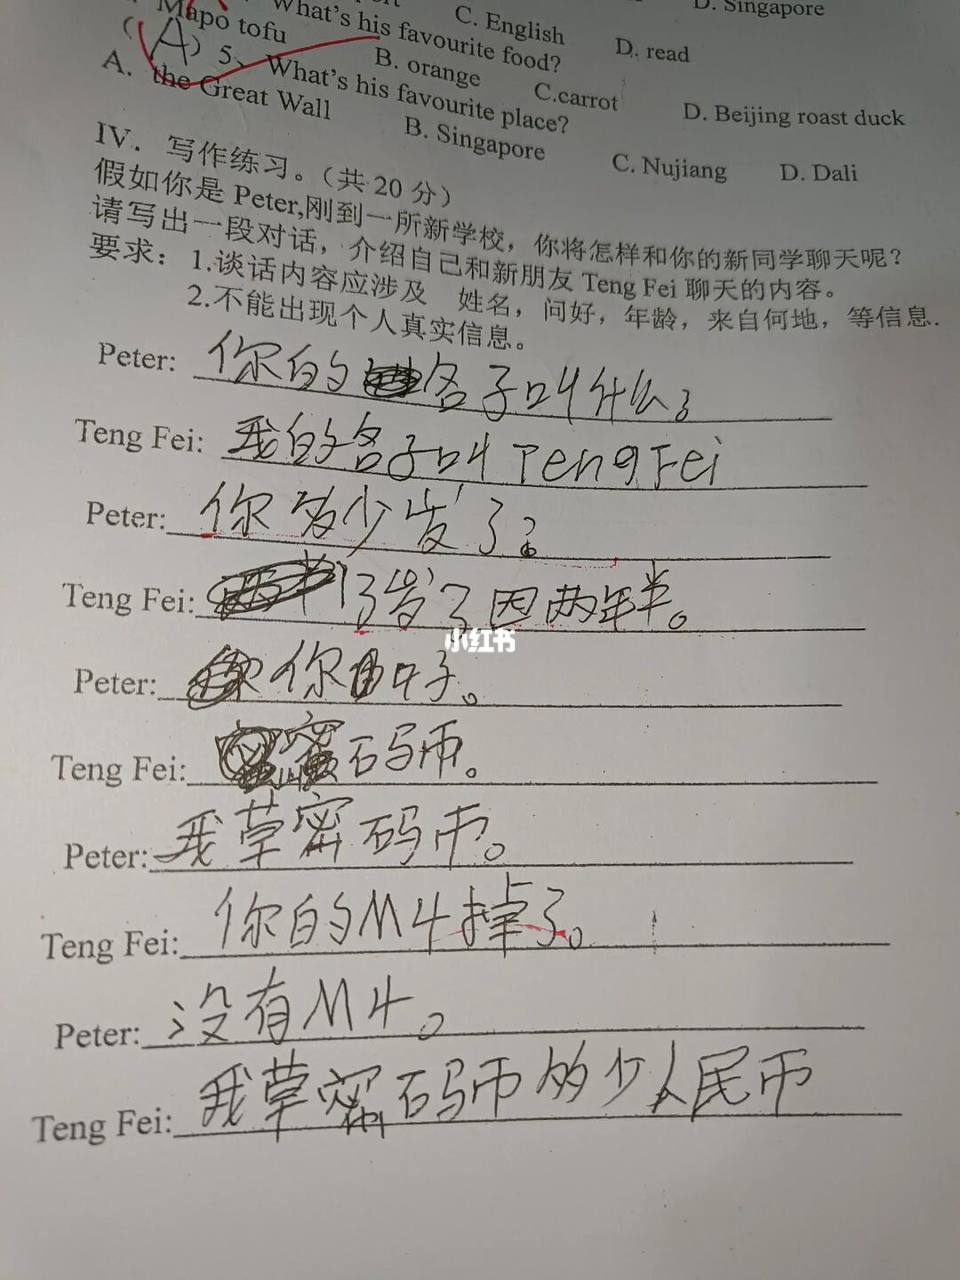 C. English
D. Singapore
What's his favourite food?
Mapo tofu
B. orange
C.carrot
D. read
(A) 5、What's his favourite place?
D. Beijing roast duck
A. the Great Wall
B. Singapore
C. Nujiang
D. Dali
IV．写作练习。（共 20 分）
假如你是 Peter,刚到一所新学校，你将怎样和你的新同学聊天呢？
请写出一段对话，介绍自己和新朋友 Teng Fei 聊天的内容。
要求：1.谈话内容应涉及 姓名，问好，年龄，来自何地，等信息.
2.不能出现个人真实信息。
Peter: 你的名子叫什么？
Teng Fei: 我的名子叫 TengFei
Peter: 你多少岁了？
Teng Fei: 13岁了因两年半。
Peter: 你好。
Teng Fei: 密码币。
Peter: 我草密码币。
Teng Fei: 你的M4掉了。
Peter: 没有M4。
Teng Fei: 我草密码币多少人民币
小红书